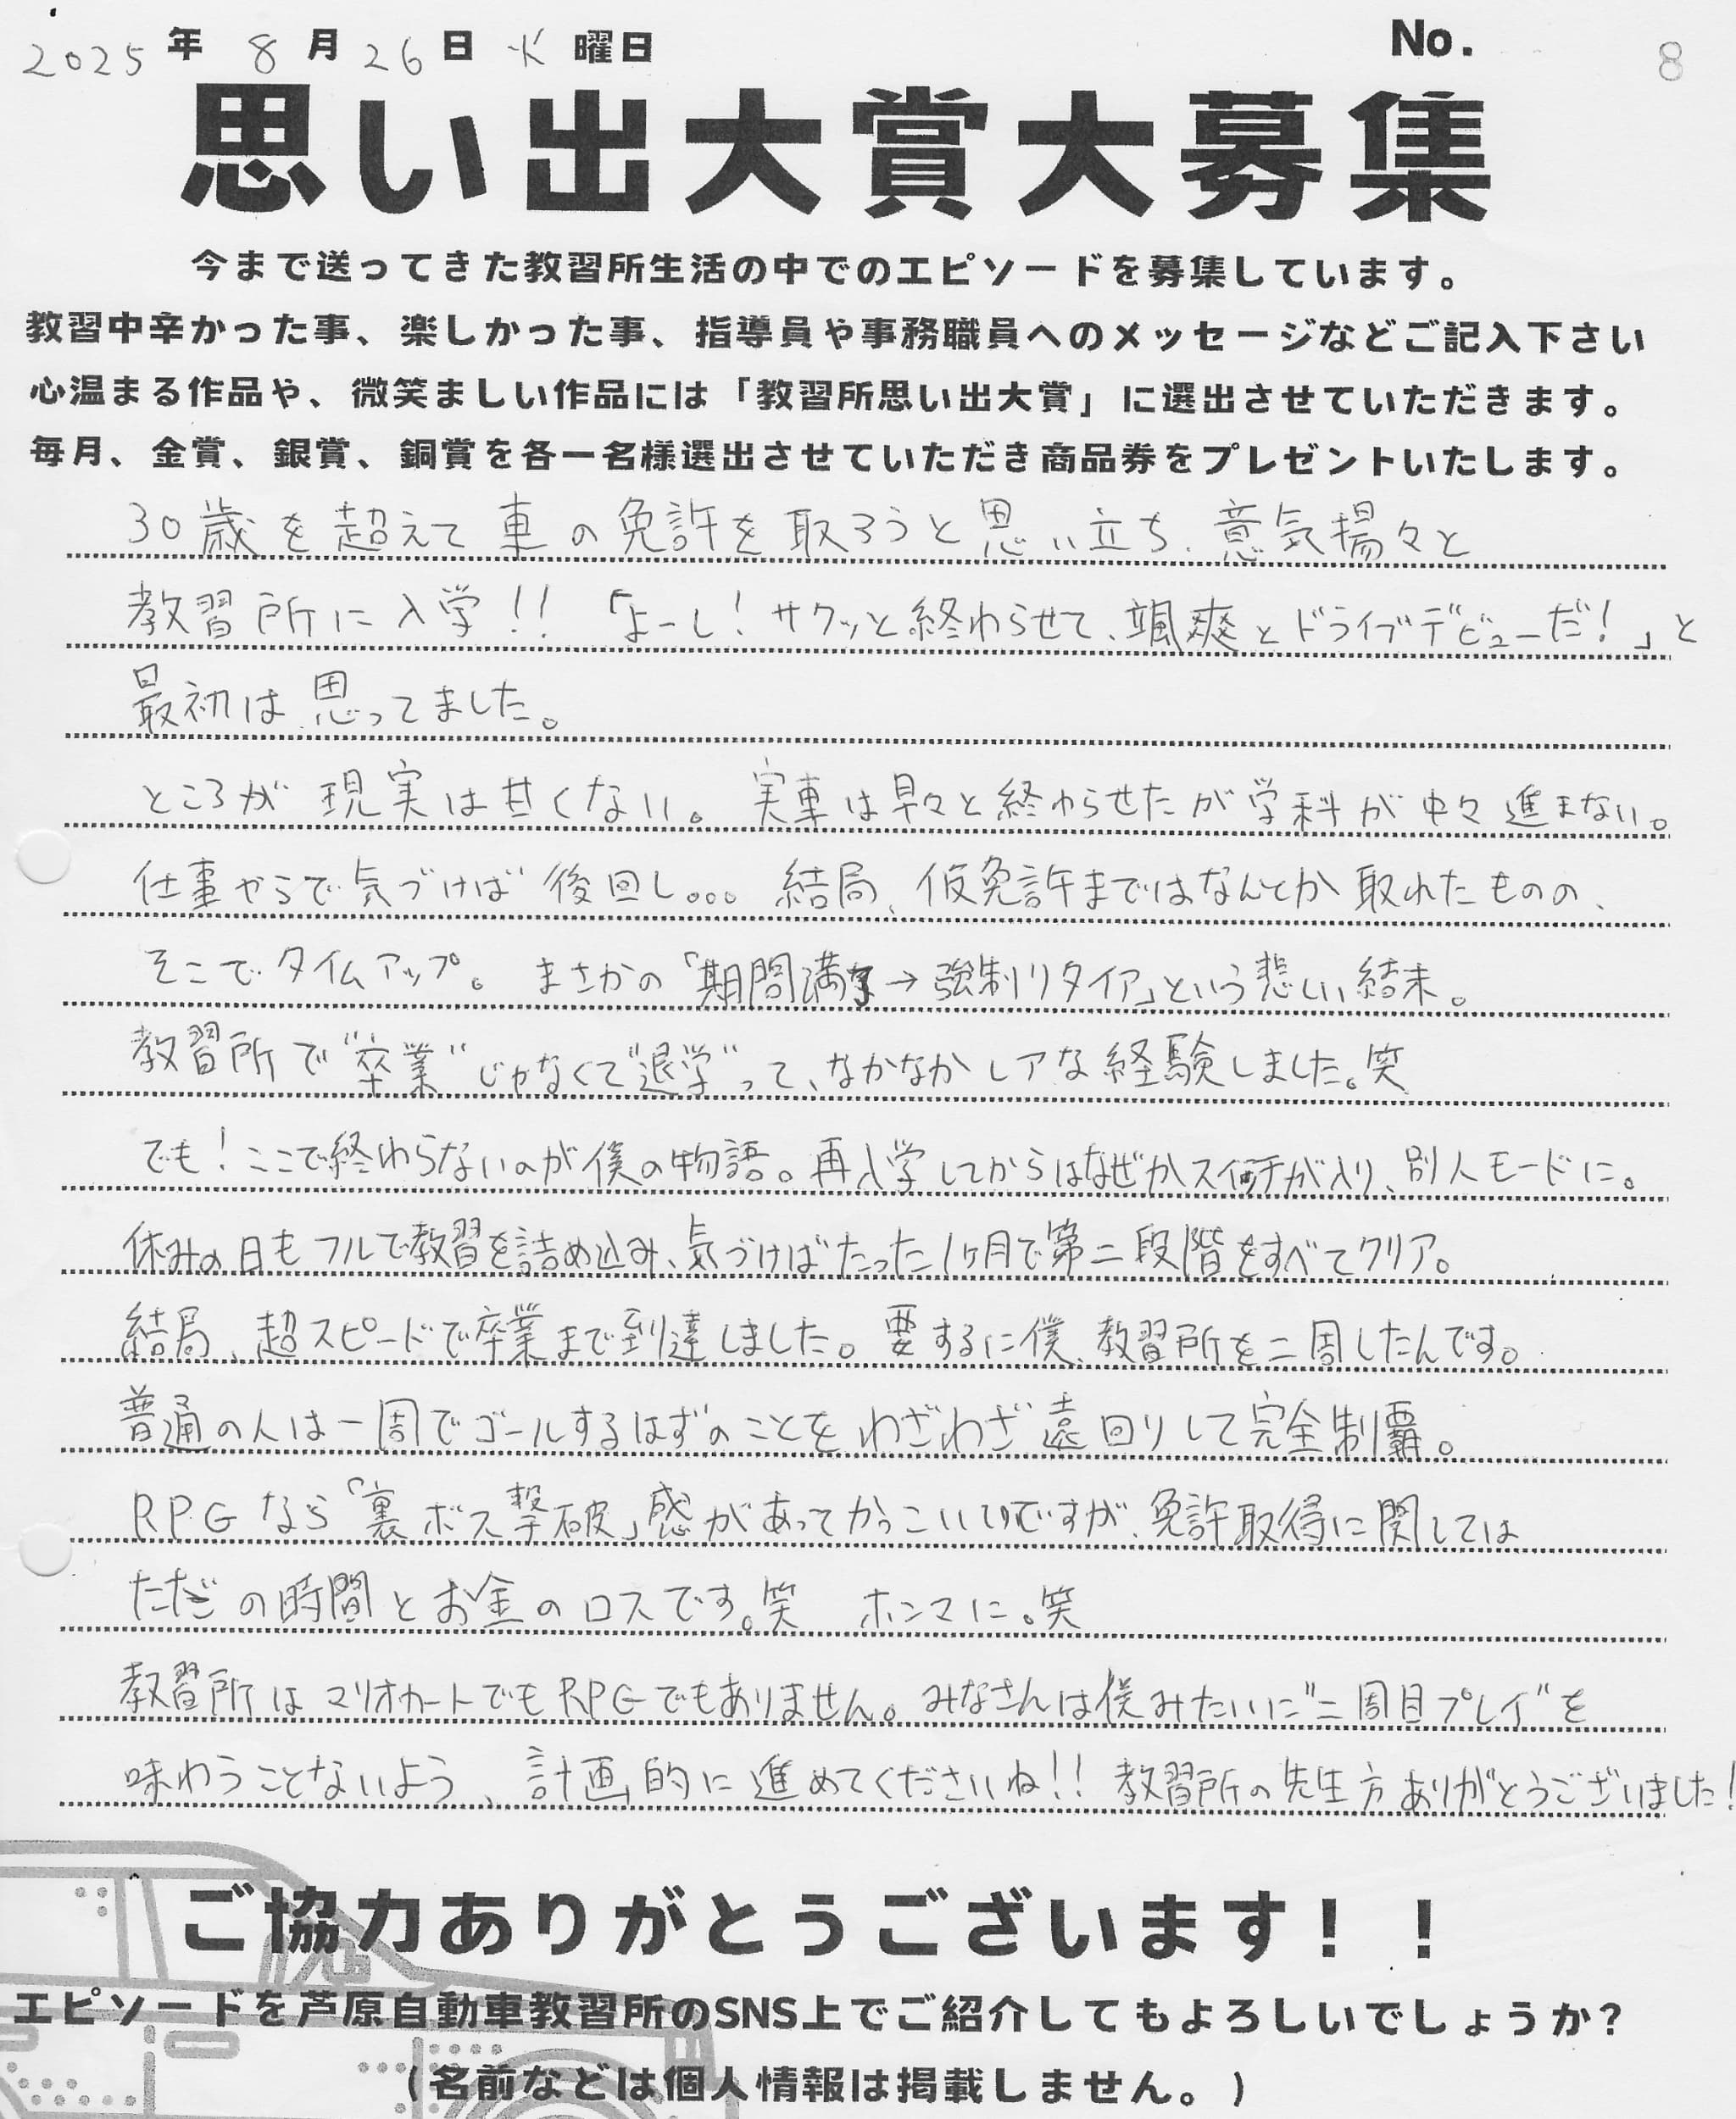 2025年 8月26日 火曜日 No. 8
思い出大賞大募集
今まで送ってきた教習所生活の中でのエピソードを募集しています。
教習中辛かった事、楽しかった事、指導員や事務職員へのメッセージなどご記入下さい
心温まる作品や、微笑ましい作品には「教習所思い出大賞」に選出させていただきます。
毎月、金賞、銀賞、銅賞を各一名様選出させていただき商品券をプレゼントいたします。
30歳を超えて車の免許を取ろうと思い立ち、意気揚々と
教習所に入学!! 「よーし!サクッと終わらせて、颯爽とドライブデビューだ!」と
最初は思ってました。
ところが現実は甘くない。実車は早々と終わらせたが学科が中々進まない。
仕事やらで気づけば後回し。。。結局、仮免許まではなんとか取れたものの、
そこでタイムアップ。まさかの「期間満了→強制リタイア」という悲しい結末。
教習所で“卒業”じゃなくて“退学”って、なかなかレアな経験しました。笑
でも!ここで終わらないのが僕の物語。再入学してからはなぜかスイッチが入り、別人モードに。
休みの日もフルで教習を詰め込み、気づけばたった1ヶ月で第二段階をすべてクリア。
結局、超スピードで卒業まで到達しました。要するに僕、教習所を二周したんです。
普通の人は一周でゴールするはずのことをわざわざ遠回りして完全制覇。
RPGなら「裏ボス撃破」感があってかっこいいですが、免許取得に関しては
ただの時間とお金のロスです。笑 ホンマに。笑
教習所はマリオカートでもRPGでもありません。みなさんは僕みたいに“二周目プレイ”を
味わうことないよう、計画的に進めてくださいね!! 教習所の先生方ありがとうございました!
ご協力ありがとうございます!!
エピソードを芦原自動車教習所のSNS上でご紹介してもよろしいでしょうか?
(名前などは個人情報は掲載しません。)